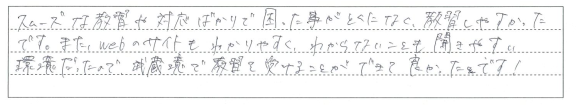 スムーズな教習や対応ばかりで困った事がとくになく、教習しやすかった
です。また、webのサイトもわかりやすく、わからないことも聞きやすい
環境だったので、武蔵境で教習を受けることができて良かったです！